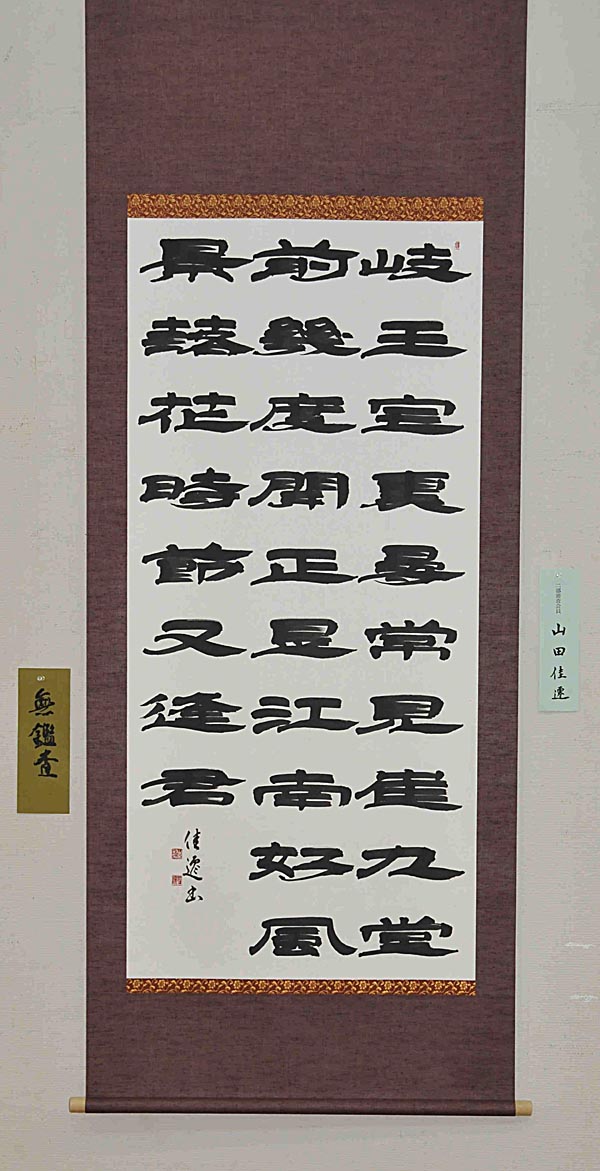 岐王宅裏尋常見崔九堂
前幾度聞正是江南好風
景落花時節又逢君
佳遷書
無鑑査
山田佳遷